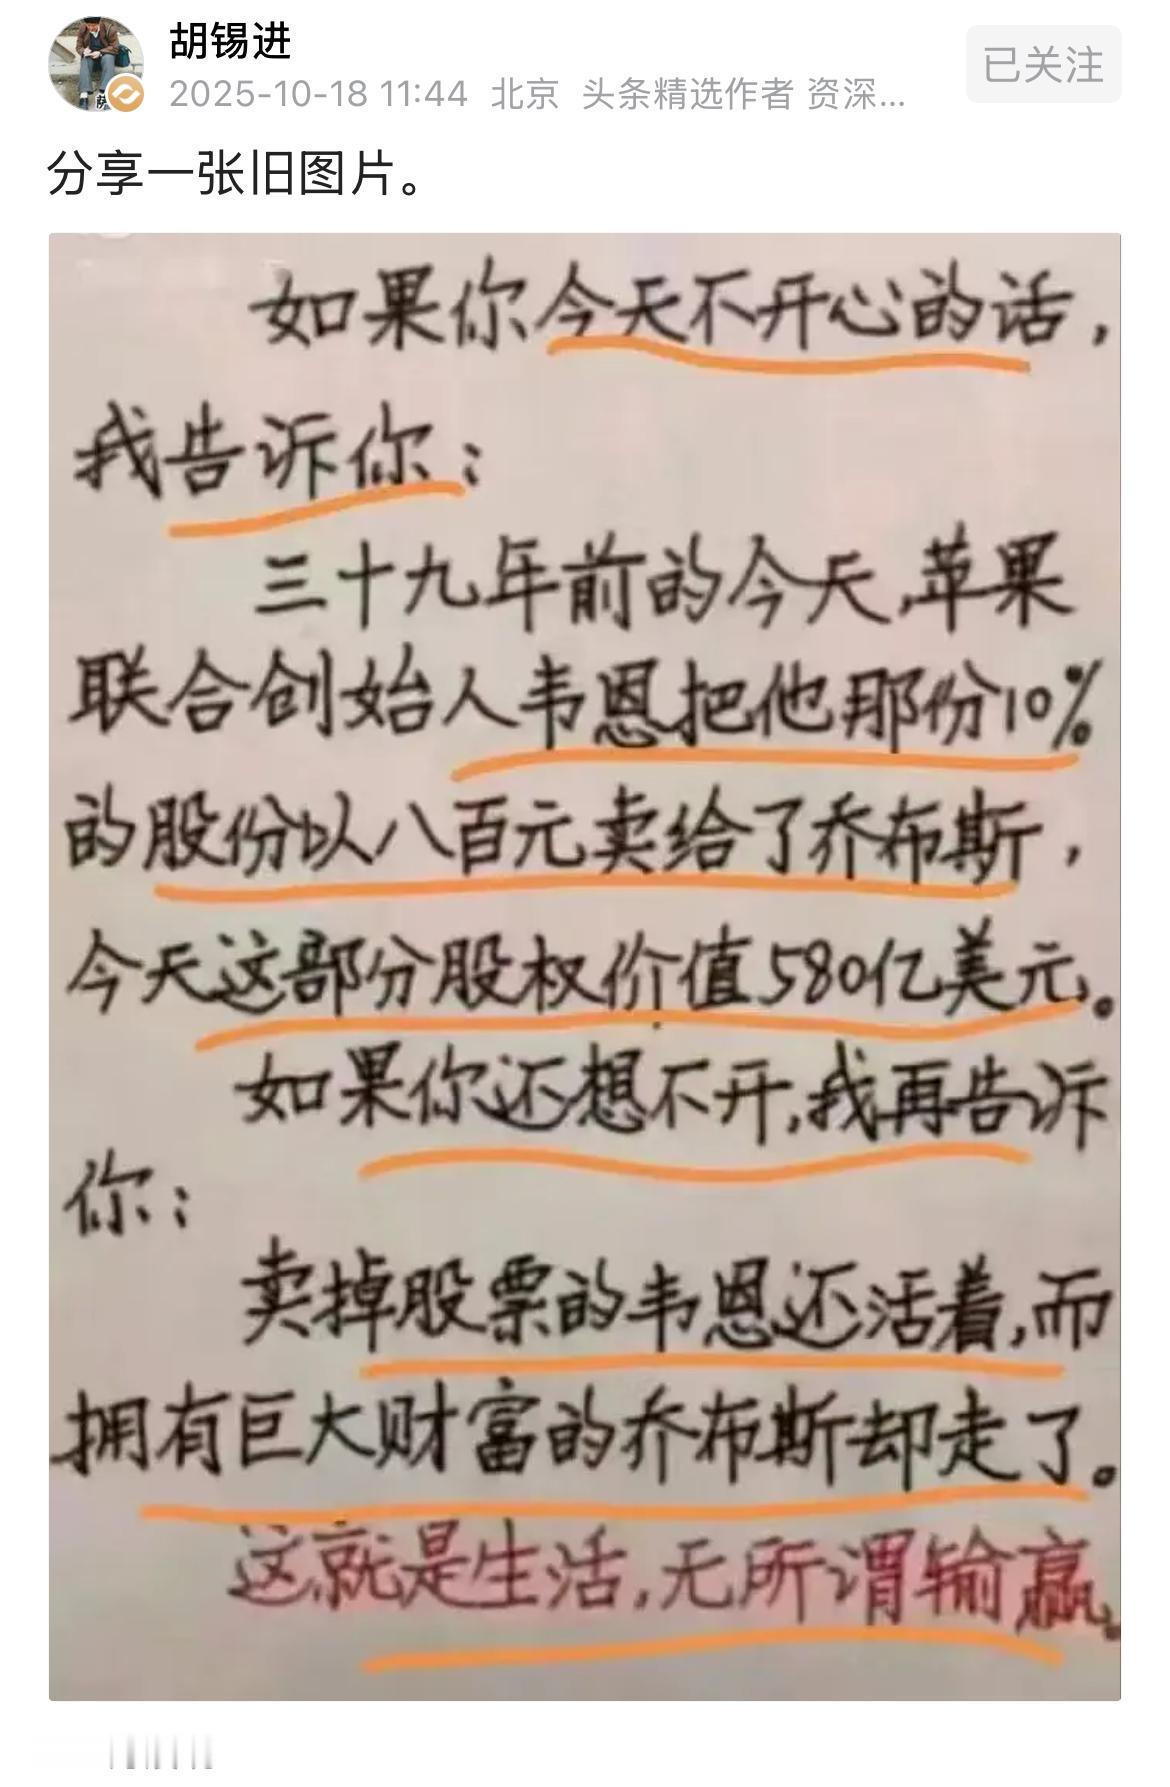 胡锡进
已关注
2025-10-18 11:44 北京 头条精选作者 资深...
分享一张旧图片。
如果你今天不开心的话，
我告诉你：
三十九年前的今天,苹果
联合创始人韦恩把他那份10%
的股份以八百元卖给了乔布斯，
今天这部分股权价值580亿美元。
如果你还想不开,我再告诉
你：
卖掉股票的韦恩还活着,而
拥有巨大财富的乔布斯却走了。
这就是生活,无所谓输赢。